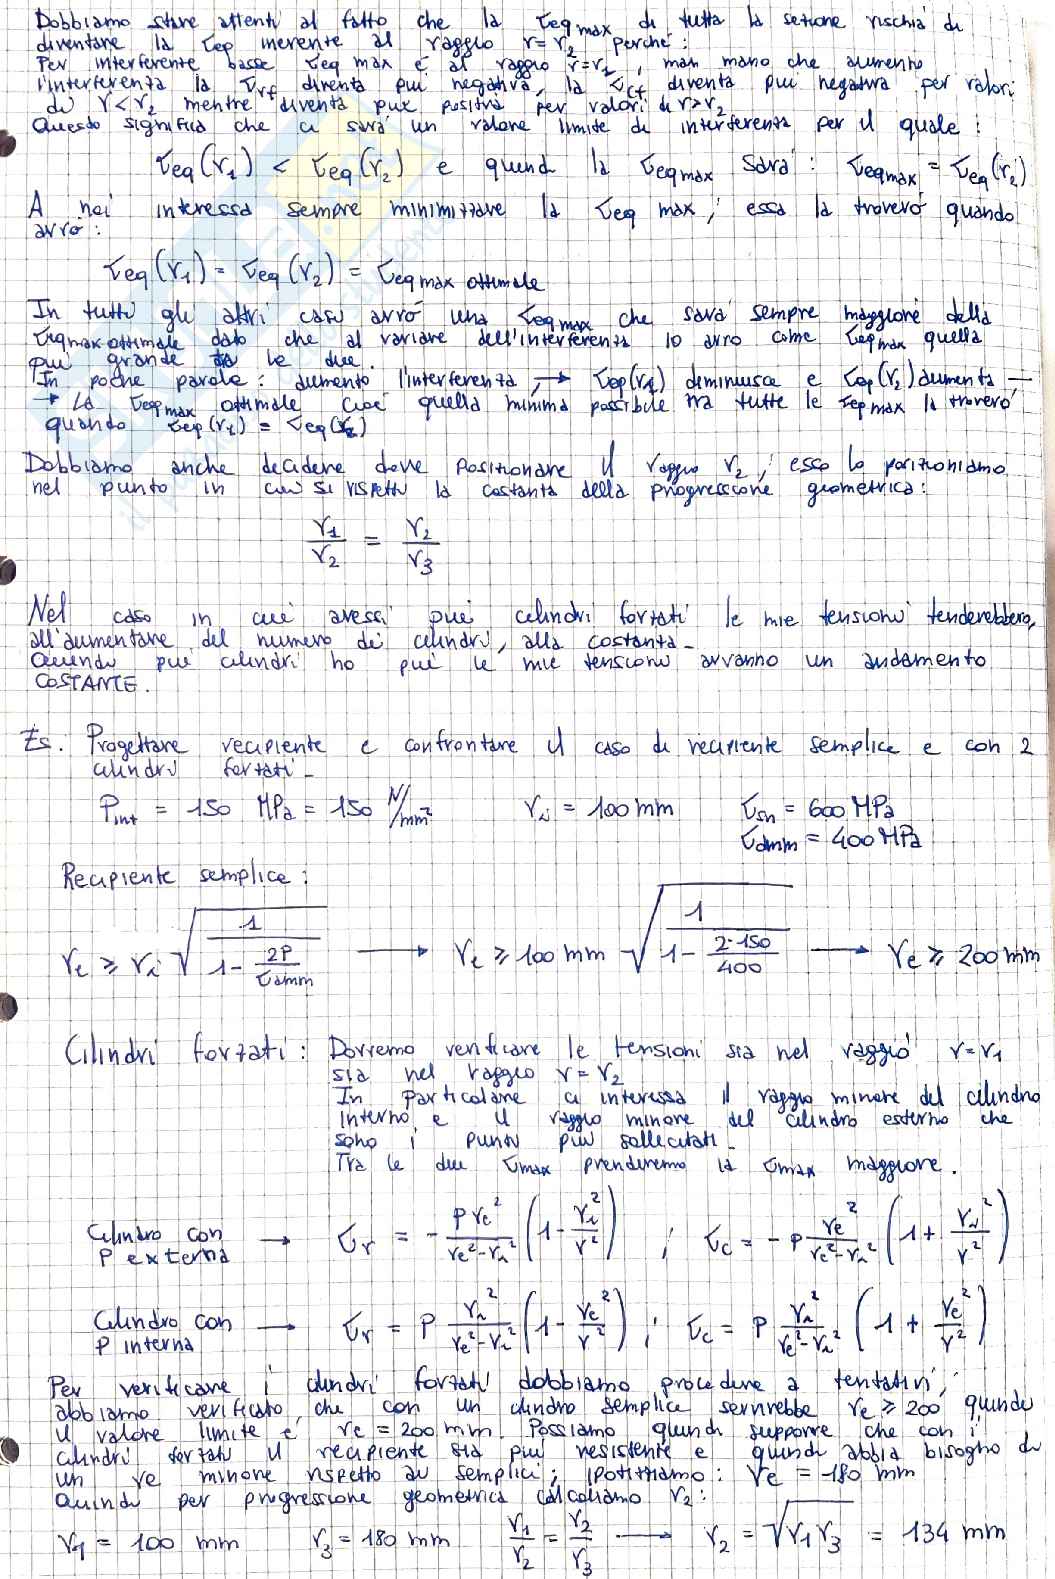 Dobbiamo stare attenti al fatto che la σeq max di tutta la sezione rischia di
diventare la σeq inerente al raggio r = r2 perché:
Per interferenze basse σeq max è al raggio r=r1, man mano che aumento
l'interferenza la σrf diventa più negativa, la σcf diventa più negativa per valori
di r<r2 mentre diventa più positiva per valori di r>r2
Questo significa che ci sarà un valore limite di interferenza per il quale:
σeq(r1) < σeq(r2) e quindi la σeqmax sarà: σeqmax = σeq(r2)
A noi interessa sempre minimizzare la σeq max; essa la troverò quando
avrò:
σeq(r1) = σeq(r2) = σeqmax ottimale
In tutti gli altri casi avrò una σeqmax che sarà sempre maggiore della
σeqmax ottimale dato che al variare dell'interferenza io avrò come σeqmax quella
più grande le due.
In poche parole: aumento l'interferenza, → σeq(r1) diminuisce e σeq(r2) aumenta →
→ La σeqmax ottimale cioè quella minima possibile tra tutte le σeqmax la troverò
quando σeq(r1) = σeq(r2)
Dobbiamo anche decidere dove posizionare il raggio r2; esso lo posizioniamo
nel punto in cui si rispetti la costanza della progressione geometrica:
r1/r2 = r2/r3
Nel caso in cui avessi più cilindri forzati le mie tensioni tenderebbero,
all'aumentare del numero dei cilindri, alla costanza.
Quindi più cilindri ho più le mie tensioni avranno un andamento
COSTANTE.
Es. Progettare recipiente e confrontare il caso di recipiente semplice e con 2
cilindri forzati.
Pint = 150 MPa = 150 N/mm² ri = 100 mm σsn = 600 MPa
σamm = 400 MPa
Recipiente semplice:
re ≥ ri √(1/(1 - 2P/σamm)) → re ≥ 100 mm √(1/(1 - 2·150/400)) → re ≥ 200 mm
Cilindri forzati: Dovremo verificare le tensioni sia nel raggio r=r1
sia nel raggio r=r2
In particolare ci interessa il raggio minore del cilindro
interno e il raggio minore del cilindro esterno che
sono i punti più sollecitati.
Tra le due σmax prenderemo la σmax maggiore.
Cilindro con
P externa → σr = - P re²/(re²-ri²) (1 - ri²/r²) ; σc = - P re²/(re²-ri²) (1 + ri²/r²)
Cilindro con
P interna → σr = P ri²/(re²-ri²) (1 - re²/r²) ; σc = P ri²/(re²-ri²) (1 + re²/r²)
Per verificare i cilindri forzati dobbiamo procedere a tentativi,
abbiamo verificato che con un cilindro semplice servirebbe re ≥ 200 quindi
il valore limite è re = 200 mm. Possiamo quindi supporre che con i
cilindri forzati il recipiente sia più resistente e quindi abbia bisogno di
un re minore rispetto ai semplici; ipotizziamo: re = 180 mm
Quindi per progressione geometrica calcoliamo r2:
r1 = 100 mm r3 = 180 mm r1/r2 = r2/r3 → r2 = √(r1 r3) = 134 mm